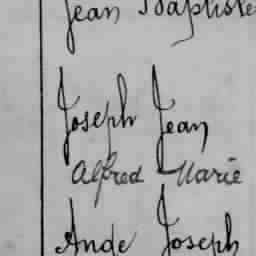 Jean Baptiste
Joseph Jean
Alfred Marie
Ange Joseph